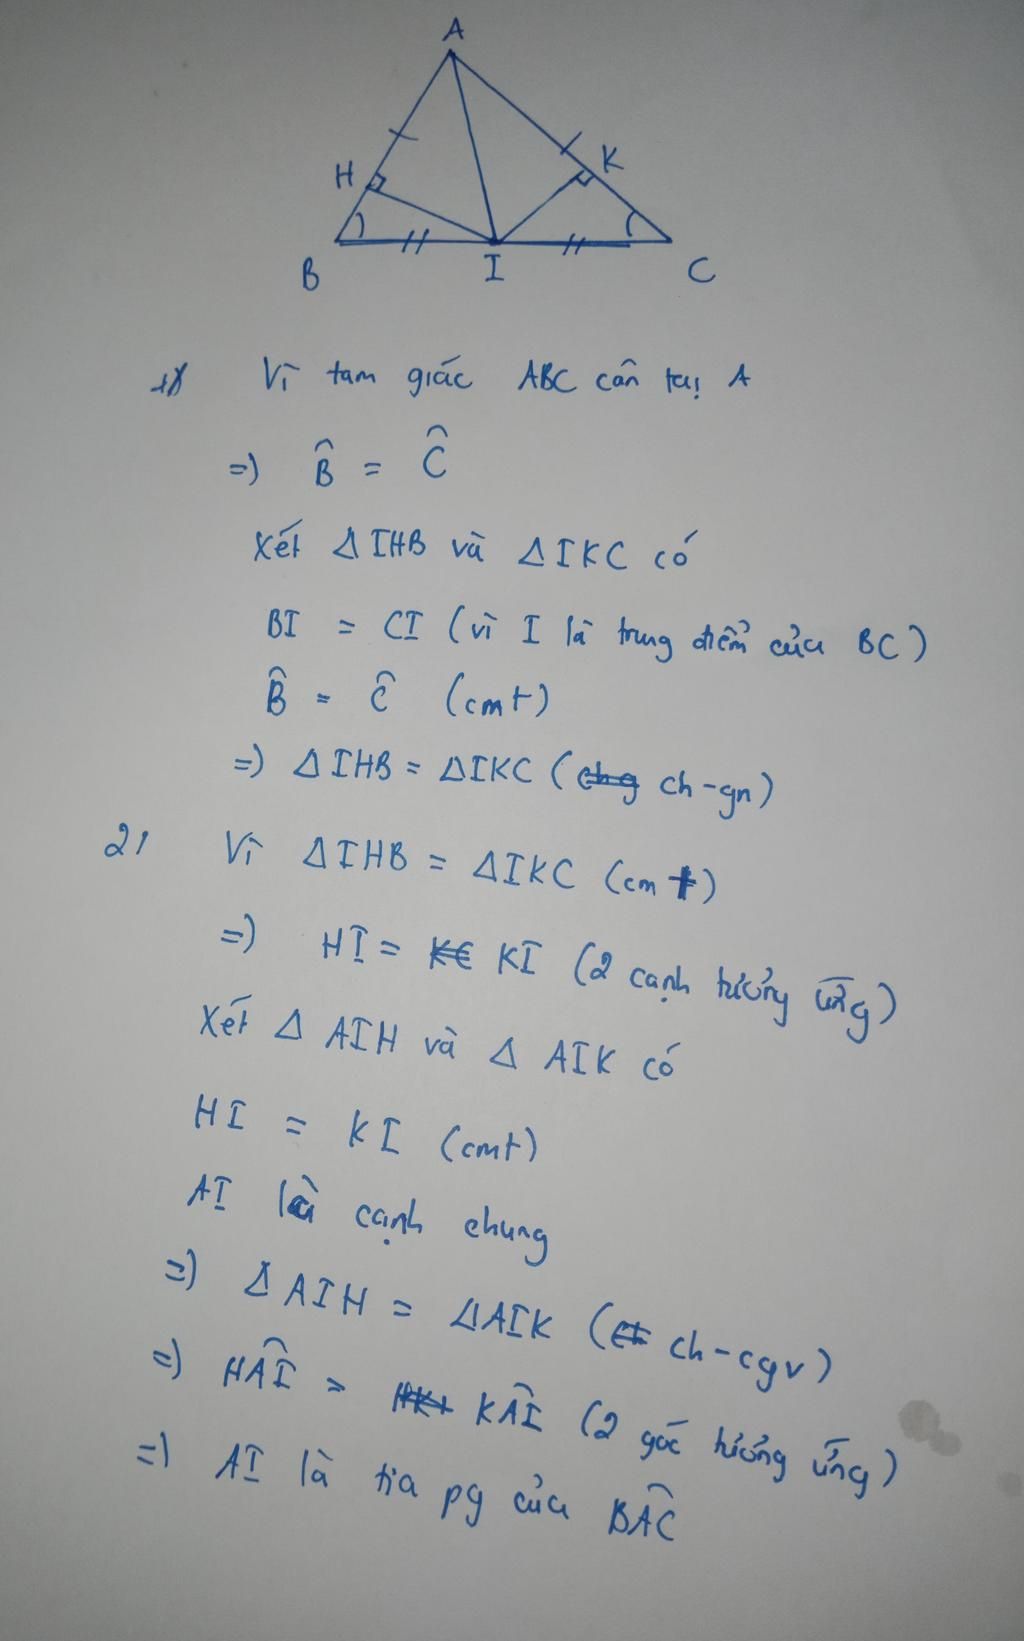 A
H
K
B
I
C
1) Vì tam giác ABC cân tại A
=) B̂ = Ĉ
Xét Δ IHB và Δ IKC có
BI = CI (vì I là trung điểm của BC)
B̂ = Ĉ (cmt)
=) Δ IHB = Δ IKC (ch-gn)
2) Vì Δ IHB = Δ IKC (cmt)
=) HI = KI (2 cạnh tương ứng)
Xét Δ AIH và Δ AIK có
HI = KI (cmt)
AI là cạnh chung
=) Δ AIH = Δ AIK (ch-cgv)
=) HÂI = KÂI (2 góc tương ứng)
=) AI là tia pg của BÂC